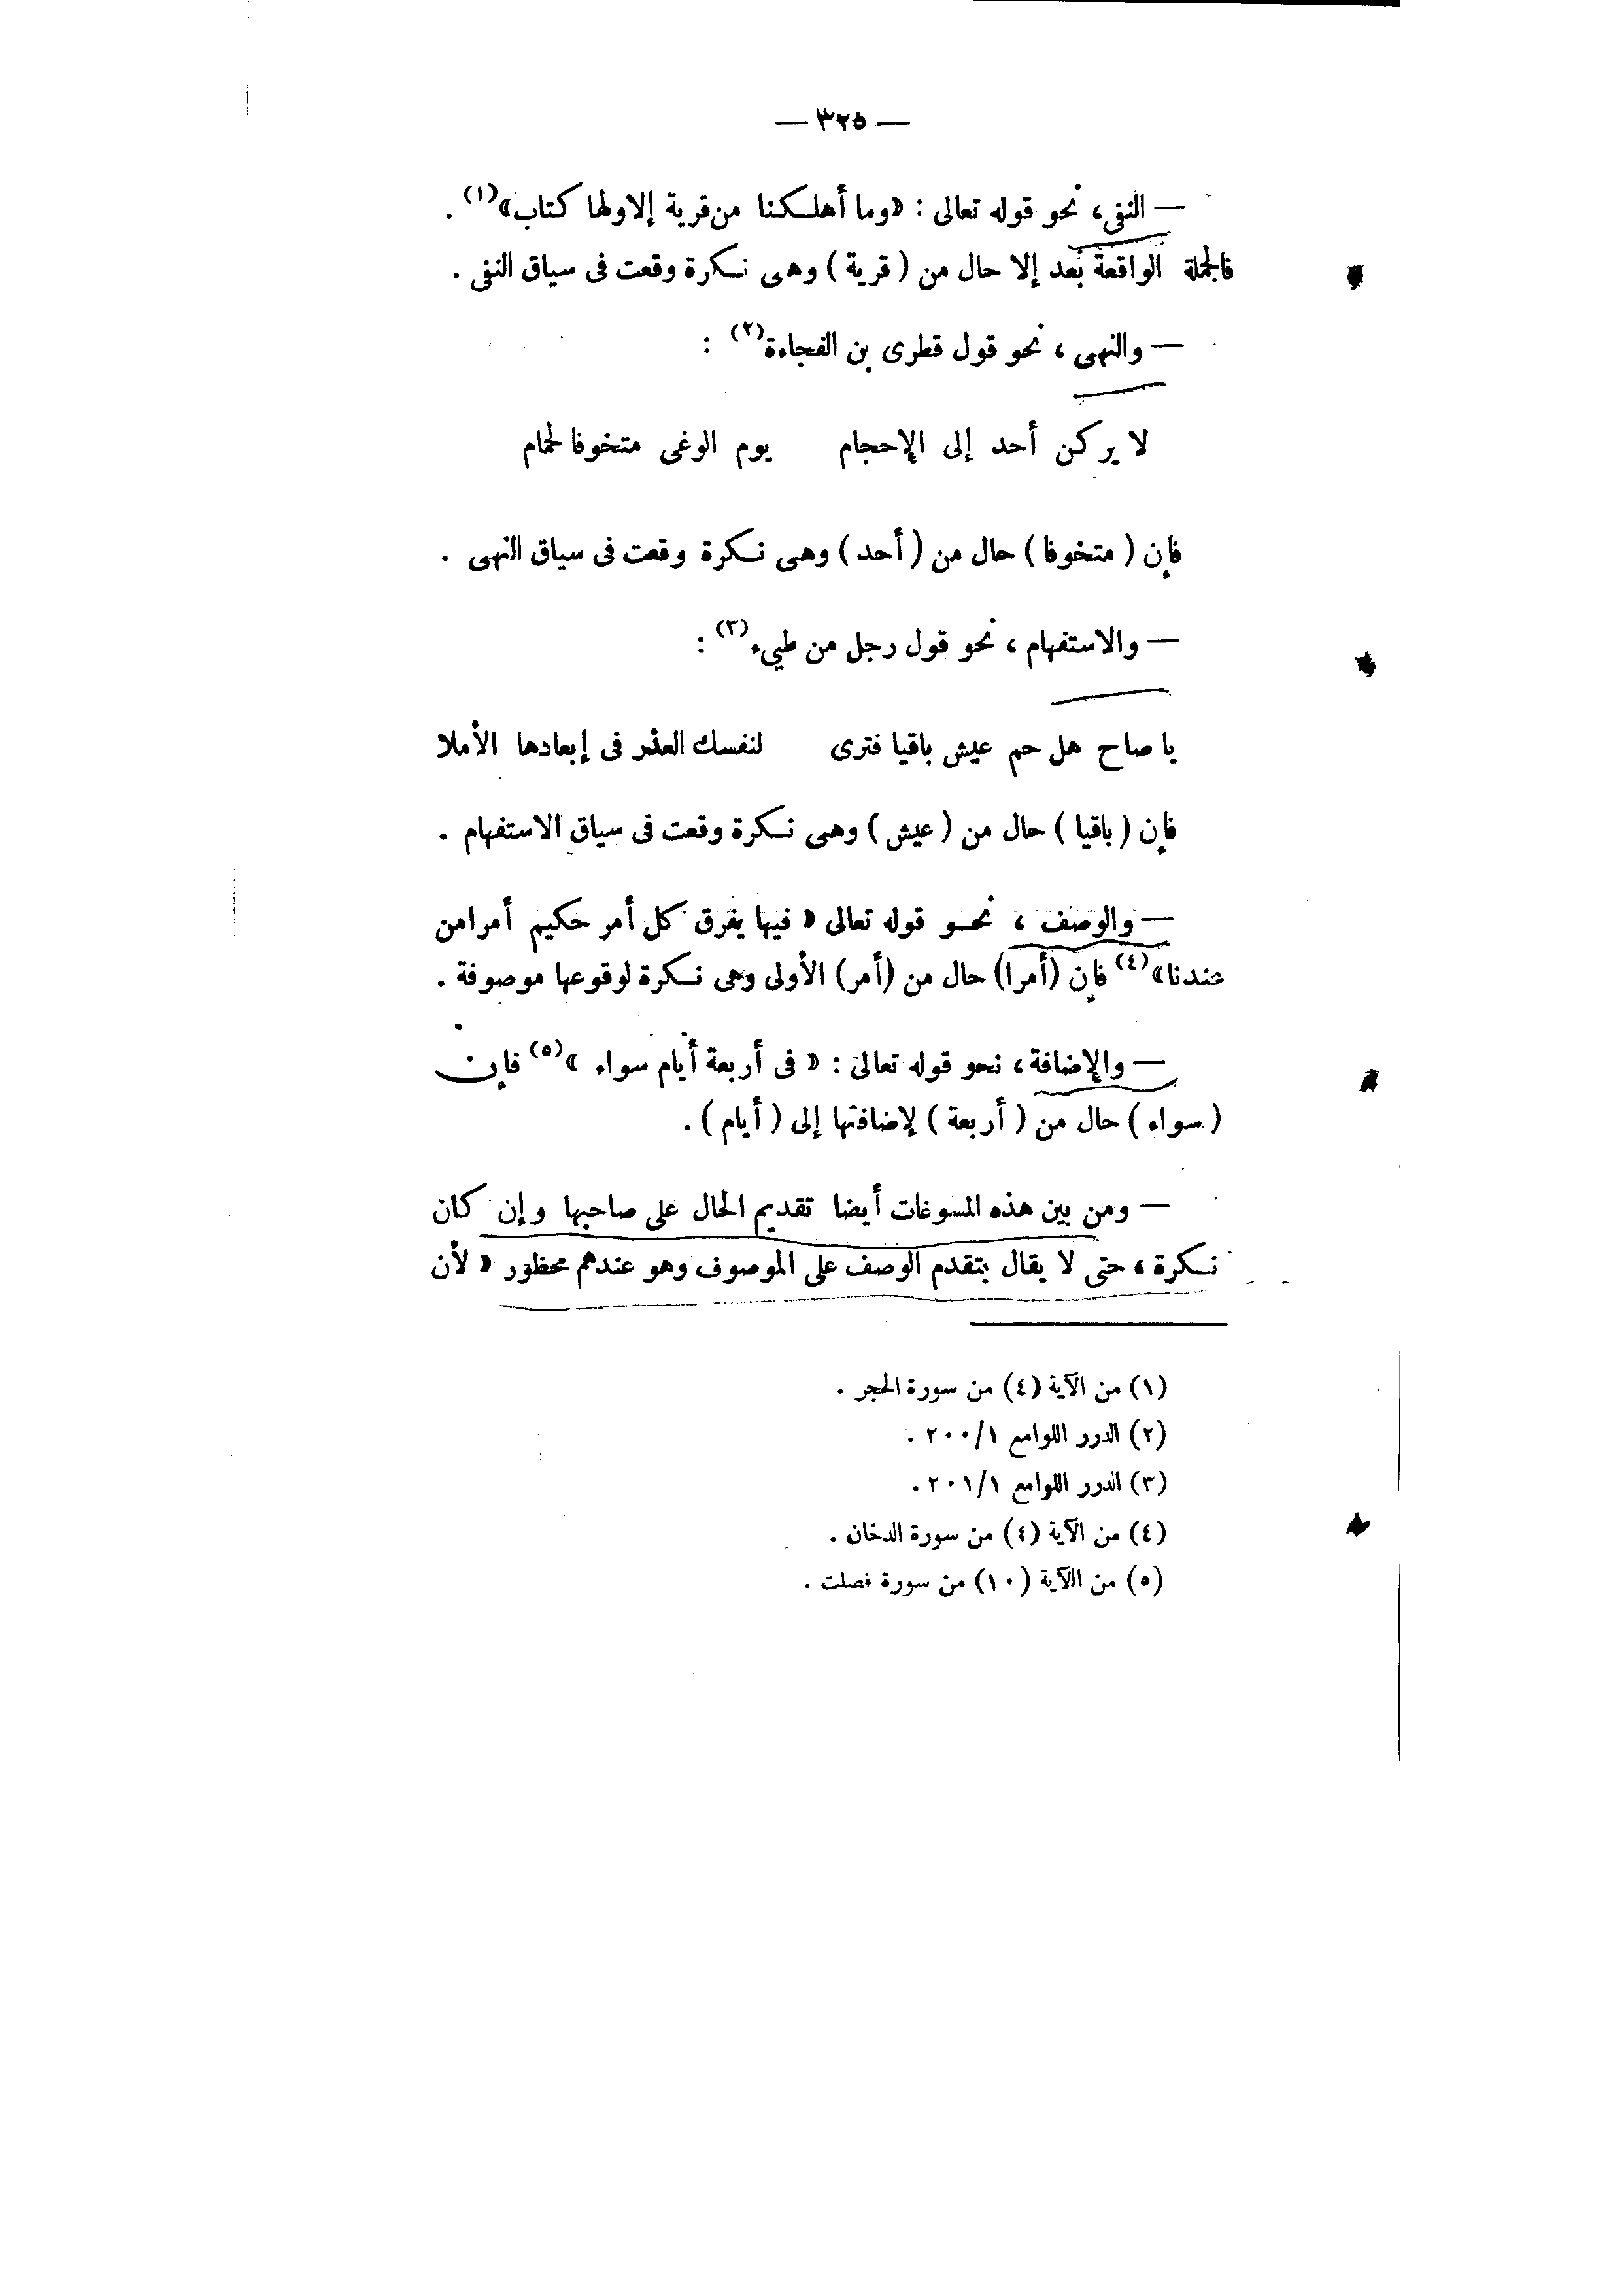 — ٣٢٥ —
— النفى، نحو قوله تعالى : «وما أهلكنا من قرية إلا ولها كتاب»(١) .
فالجملة الواقعة بعد إلا حال من ( قرية ) وهى نكرة وقعت فى سياق النفى .
— والنهى ، نحو قول قطرى بن الفجاءة(٢) :
لا يركن أحد إلى الإحجام يوم الوغى متخوفا لحمام
فإن ( متخوفا ) حال من ( أحد ) وهى نكرة وقعت فى سياق النهى .
— والاستفهام ، نحو قول رجل من طيىء(٣) :
يا صاح هل حم عيش باقيا فترى لنفسك العذر فى إبعادها الأملا
فإن ( باقيا ) حال من ( عيش ) وهى نكرة وقعت فى سياق الاستفهام .
— والوصف ، نحو قوله تعالى « فيها يفرق كل أمر حكيم أمرا من
عندنا»(٤) فإن (أمرا) حال من (أمر) الأولى وهى نكرة لوقوعها موصوفة .
— والإضافة ، نحو قوله تعالى : « فى أربعة أيام سواء »(٥) فإن
( سواء ) حال من ( أربعة ) لإضافتها إلى ( أيام ) .
— ومن بين هذه المسوغات أيضا تقديم الحال على صاحبها وإن كان
نكرة ، حتى لا يقال بتقدم الوصف على الموصوف وهو عندهم محظور « لأن
(١) من الآية (٤) من سورة الحجر .
(٢) الدرر اللوامع ٢٠٠/١ .
(٣) الدرر اللوامع ٢٠١/١ .
(٤) من الآية (٤) من سورة الدخان .
(٥) من الآية (١٠) من سورة فصلت .